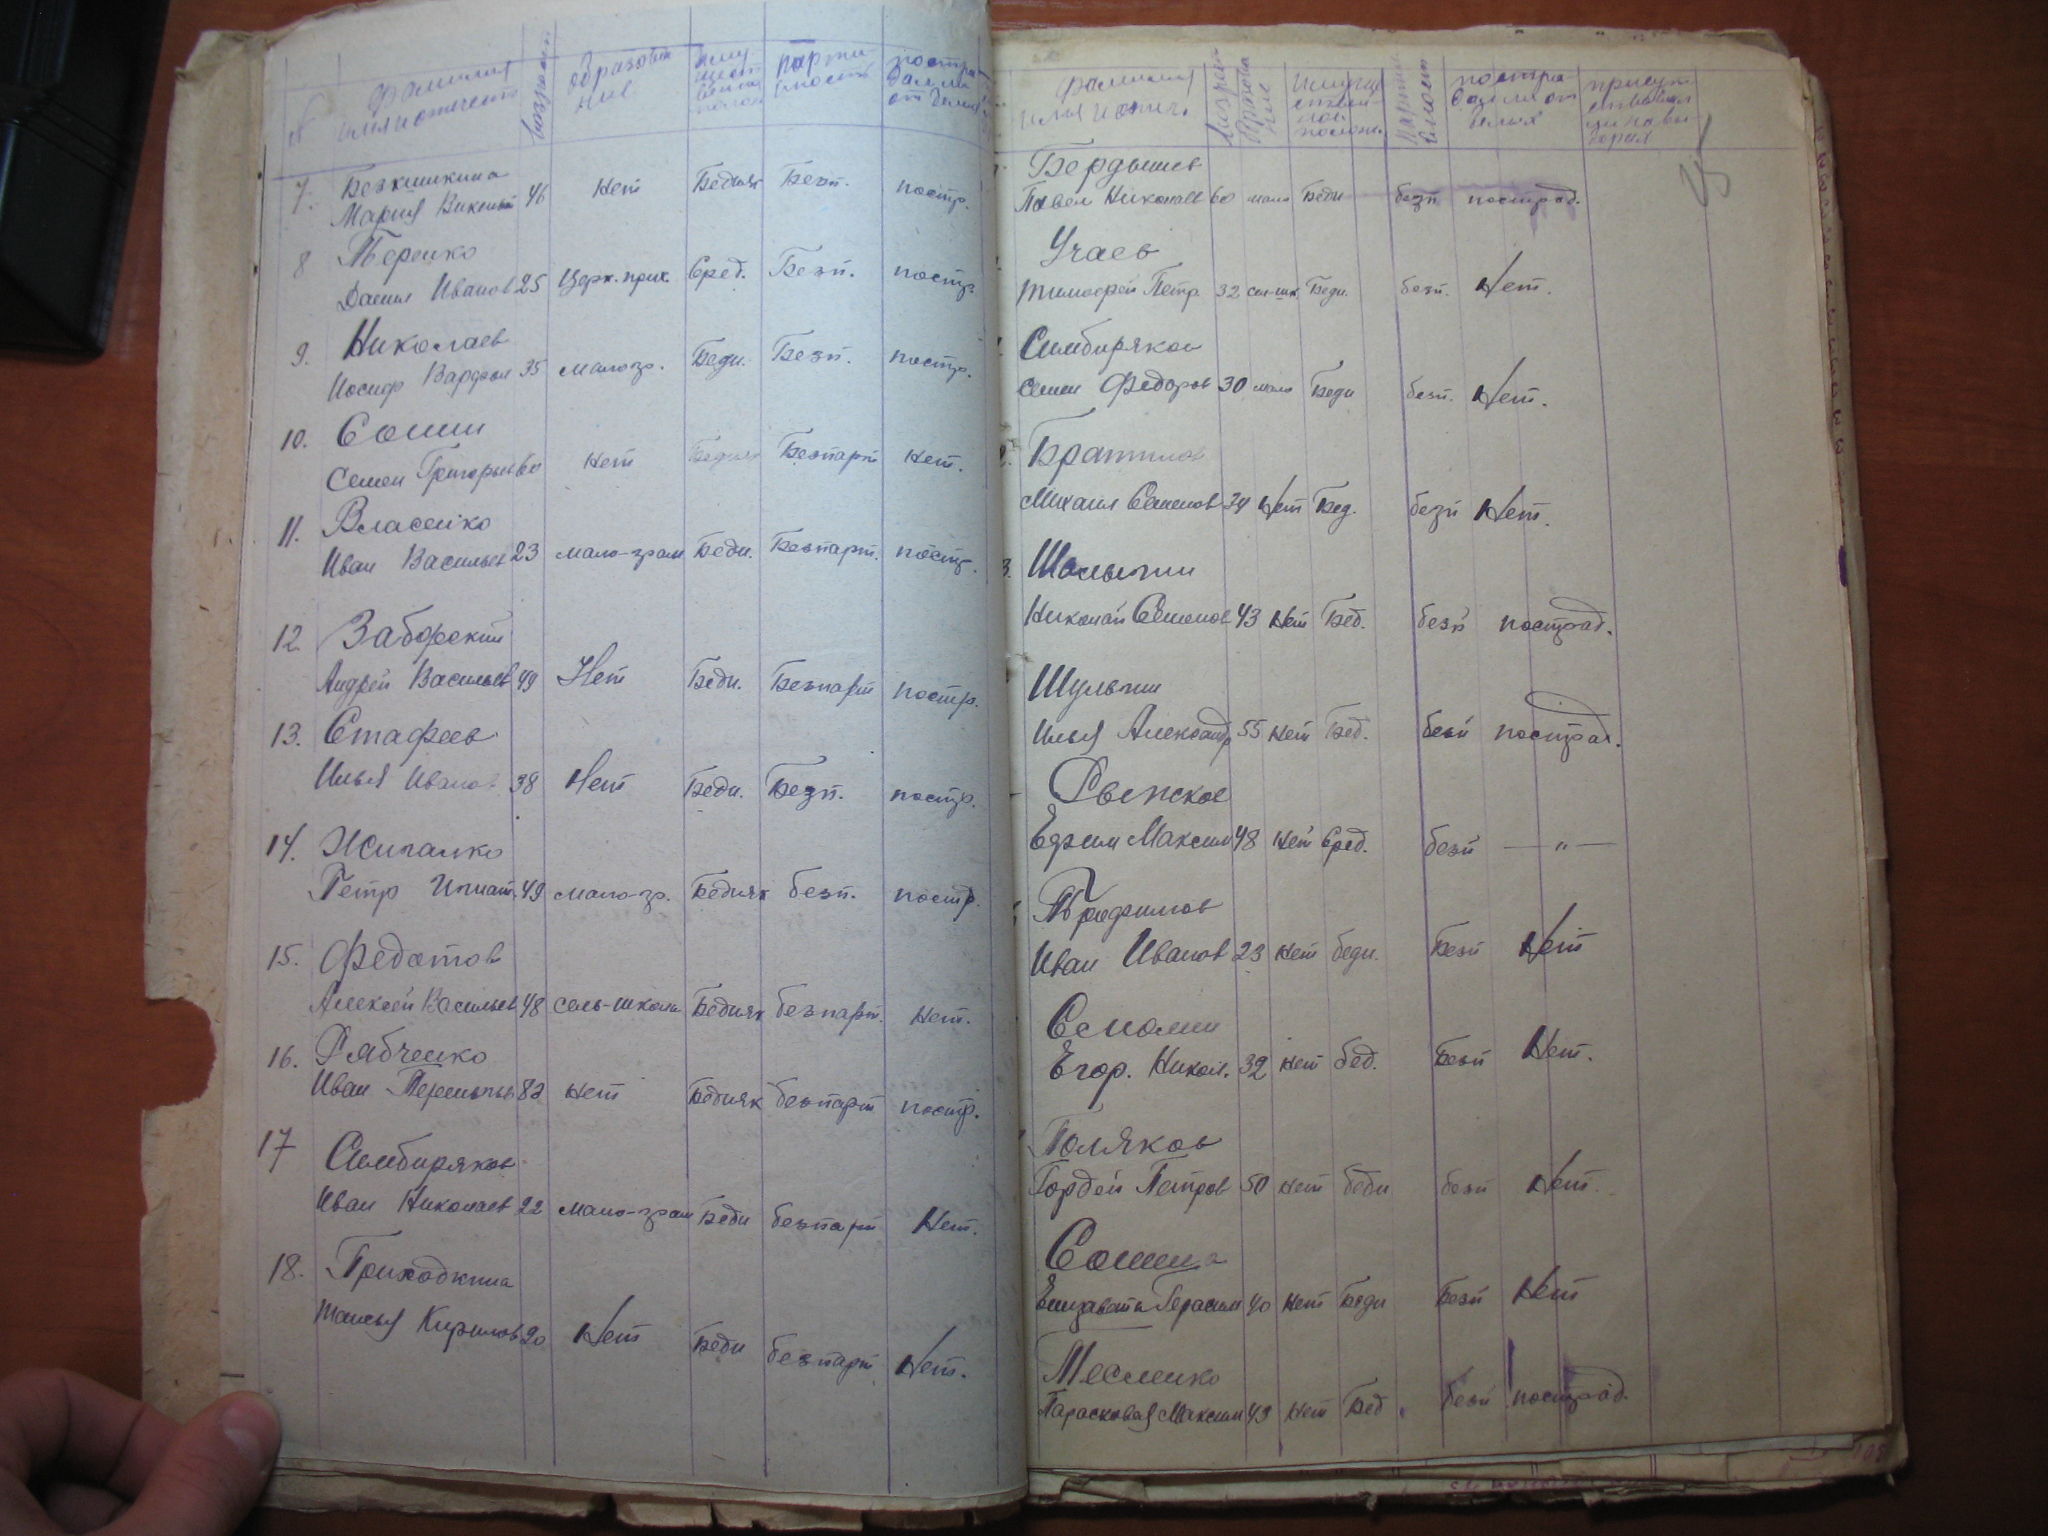 № Фамилия имя и отчество возраст образован ние имущ ществ венное полож парти йность постра дал ли от белых
7. Безкишкина
Мария Викент 46 нет Бедняк Безп. постр.
8 Терещко
Данил Иванов 25 Церк. прих. Сред. Безп. постр.
9. Николаев
Иосиф Варфол 35 мало гр. Бедн. Безп. постр.
10. Сомин
Семен Григорьев 60 нет Бедняк Безпарт нет.
11. Власенко
Иван Васильев 23 мало-грам Бедн. Безпарт. постр.
12 Заборский
Андрей Васильев 49 Нет Бедн. Безпарт постр.
13. Стафеев
Илья Иванов 38 Нет Бедн. Безп. постр.
14. Жигалко
Петр Игнат. 49 мало-гр. Бедняк безп. постр.
15. Федотов
Алексей Васильев 48 сель-школа Бедняк безпарт. Нет.
16. Рябченко
Иван Терентьев 82 нет Бедняк безпарт постр.
17 Симбиряков
Иван Николаев 22 мало-грам Бедн безпарт Нет.
18. Приходкина
Татья Кирилов 20 Нет Бедн безпарт Нет.
фамилия имя и отич. Возраст Образова ние Имуще ствен ное положен. Партий ность постра дал ли от белых присут ствовал ли на вы борах
Бердышев
Павел Николаев 60 мало Бедн безп пострад.
Учаев
Тимофей Петр 32 сел-шк Бедн. безп. Нет.
Симбиряков
Семен Федоров 30 мало Бедн безп. Нет.
Братилов
Михаил Семенов 34 Нет Бед. безп Нет.
3. Шалыгин
Николай Семенов 43 Нет Бед. безп пострад.
Шульгин
Илья Александр 55 Нет Бед. безп пострад.
Ефим Максим 48 Нет Сред. безп — " —
Трофимов
Иван Иванов 23 Нет бедн. Безп Нет
Семонин
Егор. Никол. 32 нет бед. Безп Нет.
Поляков
Гордей Петров 50 нет бедн безп Нет.
Сомина
Елизавета Герасим 40 Нет Бедн Безп Нет
Месценко
Парасковья Максим 43 Нет Бед. безп пострад.